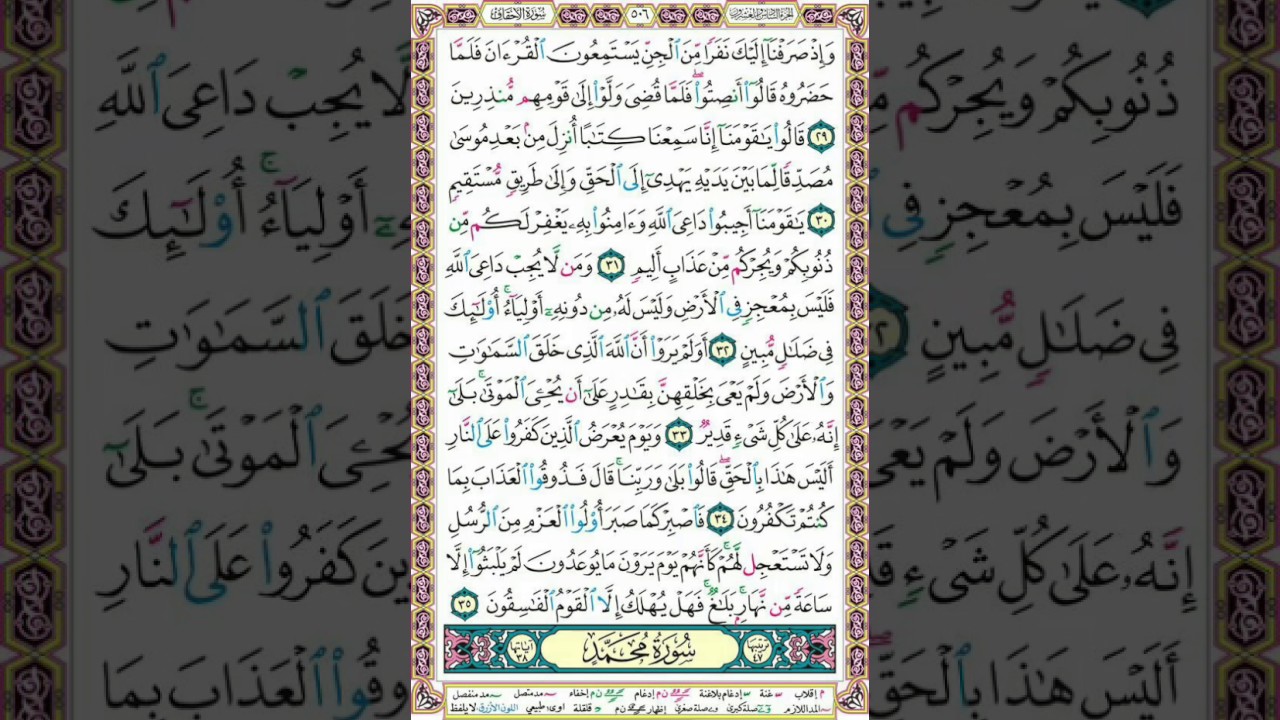 الجزء السادس والعشرون ٥٠٦ سورة الأحقاف
وَإِذْ صَرَفْنَآ إِلَيْكَ نَفَرًا مِّنَ ٱلْجِنِّ يَسْتَمِعُونَ ٱلْقُرْءَانَ فَلَمَّا
حَضَرُوهُ قَالُوٓا۟ أَنصِتُوا۟ ۖ فَلَمَّا قُضِىَ وَلَّوْا۟ إِلَىٰ قَوْمِهِم مُّنذِرِينَ
٢٩ قَالُوا۟ يَـٰقَوْمَنَآ إِنَّا سَمِعْنَا كِتَـٰبًا أُنزِلَ مِنۢ بَعْدِ مُوسَىٰ
مُصَدِّقًا لِّمَا بَيْنَ يَدَيْهِ يَهْدِىٓ إِلَى ٱلْحَقِّ وَإِلَىٰ طَرِيقٍ مُّسْتَقِيمٍ
٣٠ يَـٰقَوْمَنَآ أَجِيبُوا۟ دَاعِىَ ٱللَّهِ وَءَامِنُوا۟ بِهِۦ يَغْفِرْ لَكُم مِّن
ذُنُوبِكُمْ وَيُجِرْكُم مِّنْ عَذَابٍ أَلِيمٍ ٣١ وَمَن لَّا يُجِبْ دَاعِىَ ٱللَّهِ
فَلَيْسَ بِمُعْجِزٍ فِى ٱلْأَرْضِ وَلَيْسَ لَهُۥ مِن دُونِهِۦٓ أَوْلِيَآءُ ۚ أُو۟لَـٰٓئِكَ
فِى ضَلَـٰلٍ مُّبِينٍ ٣٢ أَوَلَمْ يَرَوْا۟ أَنَّ ٱللَّهَ ٱلَّذِى خَلَقَ ٱلسَّمَـٰوَٰتِ
وَٱلْأَرْضَ وَلَمْ يَعْىَ بِخَلْقِهِنَّ بِقَـٰدِرٍ عَلَىٰٓ أَن يُحْـِۧىَ ٱلْمَوْتَىٰ ۚ بَلَىٰٓ
إِنَّهُۥ عَلَىٰ كُلِّ شَىْءٍ قَدِيرٌ ٣٣ وَيَوْمَ يُعْرَضُ ٱلَّذِينَ كَفَرُوا۟ عَلَى ٱلنَّارِ
أَلَيْسَ هَـٰذَا بِٱلْحَقِّ ۖ قَالُوا۟ بَلَىٰ وَرَبِّنَا ۚ قَالَ فَذُوقُوا۟ ٱلْعَذَابَ بِمَا
كُنتُمْ تَكْفُرُونَ ٣٤ فَٱصْبِرْ كَمَا صَبَرَ أُو۟لُوا۟ ٱلْعَزْمِ مِنَ ٱلرُّسُلِ
وَلَا تَسْتَعْجِل لَّهُمْ ۚ كَأَنَّهُمْ يَوْمَ يَرَوْنَ مَا يُوعَدُونَ لَمْ يَلْبَثُوٓا۟ إِلَّا
سَاعَةً مِّن نَّهَارٍۭ ۚ بَلَـٰغٌ ۚ فَهَلْ يُهْلَكُ إِلَّا ٱلْقَوْمُ ٱلْفَـٰسِقُونَ ٣٥
ترتيبها ٤٧ سُورَةُ مُحَمَّدٍ آياتها ٣٨
م إقلاب غنة إدغام بلاغنة ن م إدغام ن م إخفاء مد متصل مد منفصل
المد اللازم صلة كبرى صلة صغرى إظهار ن م قلقلة اوى: طبيعي اللون الأزرق: لا يلفظ